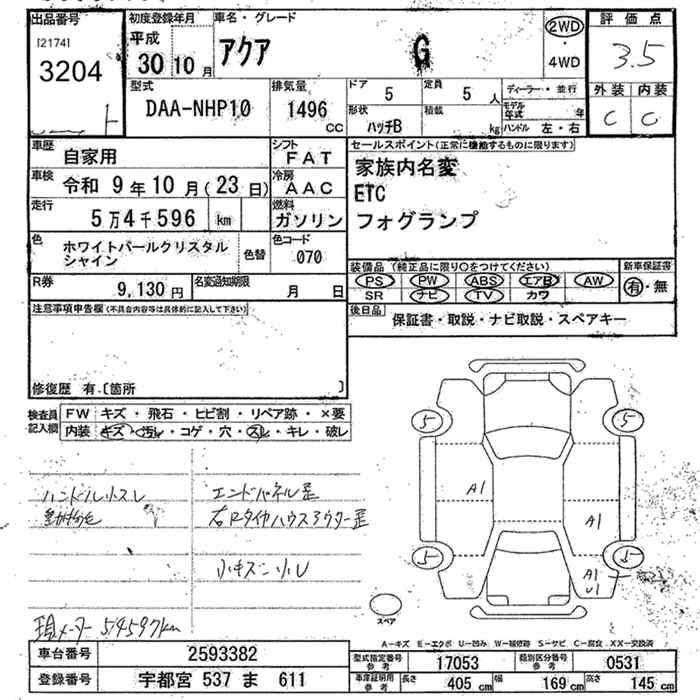 出品番号
[2174]
3204
初度登録年月
平成
30年10月
車名・グレード
アクア G
2WD
・
4WD
評価点
3.5
外装 内装
C C
型式
DAA-NHP10
排気量
1496
CC
ドア
5
定員
5人
形状
ハッチB
積載
kg
ディーラー・並行
モデル年式 年
ハンドル 左・右
車歴
自家用
シフト
FAT
車検
令和 9年10月(23日)
冷房
AAC
走行
5万4千596 km
燃料
ガソリン
色
ホワイトパールクリスタル
シャイン
色替
色コード
070
R券
9,130円
名変通知期限
月 日
セールスポイント(正常に機能するものに限ります)
家族内名変
ETC
フォグランプ
装備品(純正品に限り○をつけてください)
PS PW ABS エアB AW
SR ナビ TV カワ
新車保証書
有・無
後日品
保証書・取説・ナビ取説・スペアキー
注意事項申告欄(不具合内容等は具体的に記入して下さい)
修復歴 有.〔箇所 〕
検査員
記入欄
FW キズ・飛石・ヒビ割・リペア跡・×要
内装 キズ・汚れ・コゲ・穴・スレ・キレ・破レ
ハンドル小スレ
エンドパネル歪
右Rタイヤハウスアウター歪
小キズ
現メーター 54597km
5 5
A1
A1
5 5
A1
U1
スペア
A-キズ E-エクボ U-凹み W-補修跡 S-サビ C-腐食 XX-交換済
車台番号
2593382
登録番号
宇都宮 537 ま 611
型式指定番号
参考
17053
類別区分番号
参考
0531
車庫証明用
参考
長さ 405cm
幅 169cm
高さ 145cm